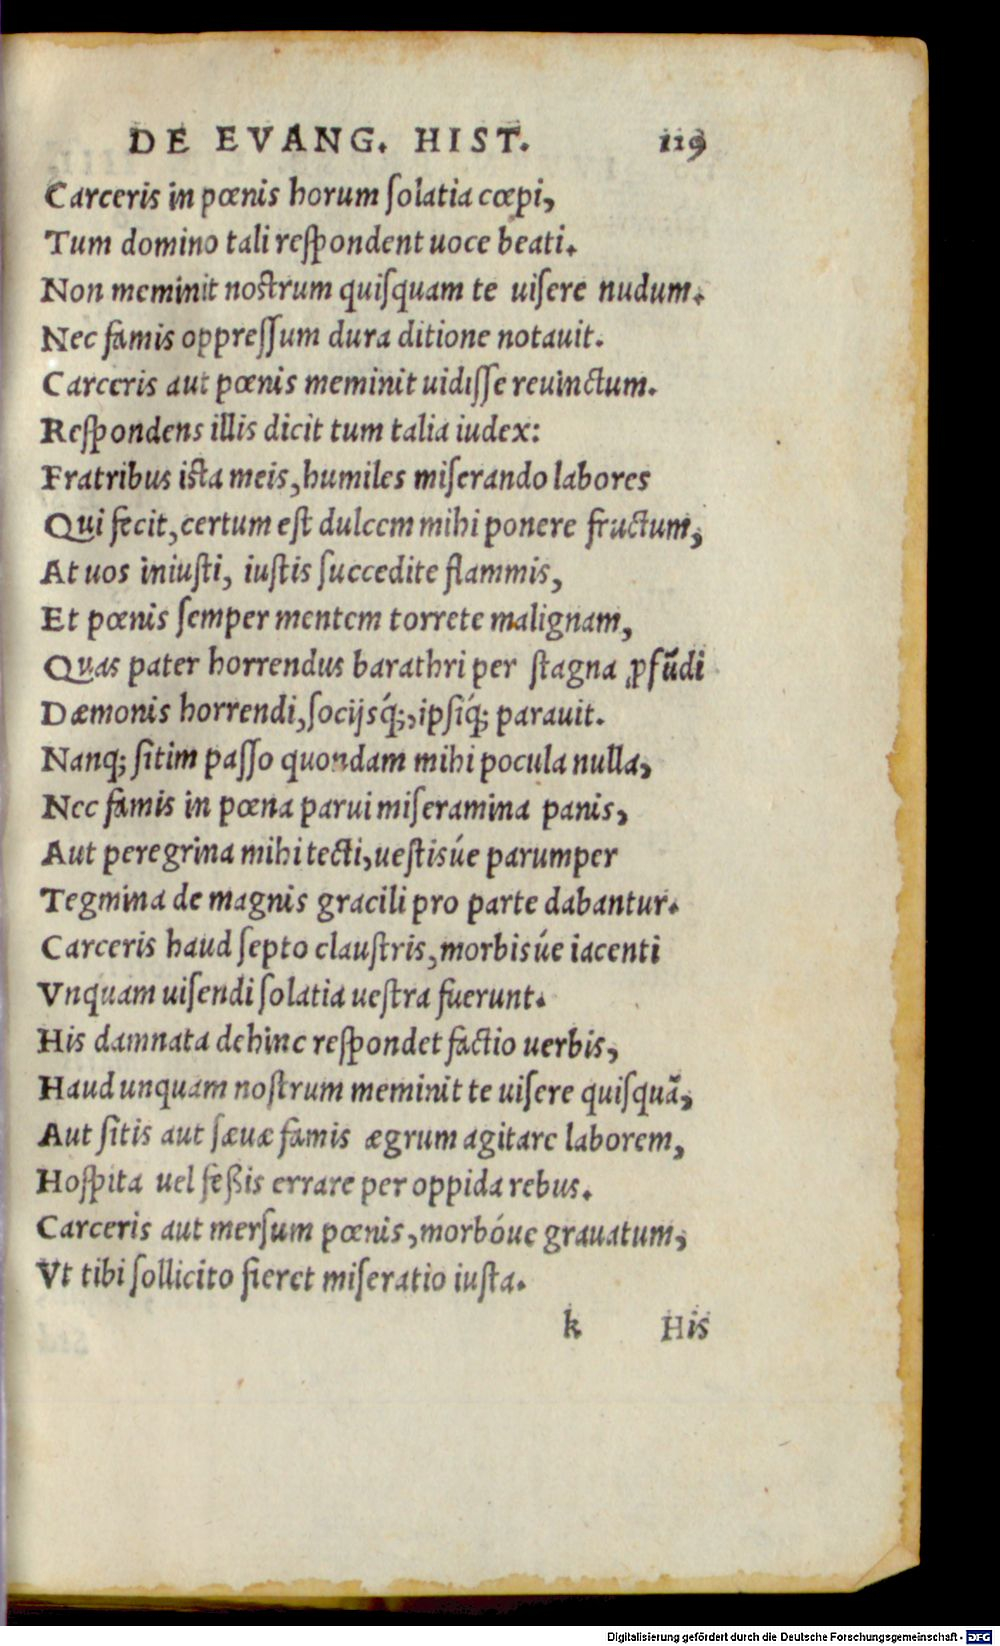 DE EVANG. HIST. 119
Carceris in pœnis horum ſolatia cœpi,
Tum domino tali reſpondent uoce beati.
Non meminit noſtrum quiſquam te uiſere nudum.
Nec famis oppreſſum dura ditione notauit.
Carceris aut pœnis meminit uidiſſe reuinctum.
Reſpondens illis dicit tum talia iudex:
Fratribus iſta meis, humiles miſerando labores
Qui fecit, certum eſt dulcem mihi ponere fructum,
At uos iniuſti, iuſtis ſuccedite flammis,
Et pœnis ſemper mentem torrete malignam,
Quas pater horrendus barathri per ſtagna ꝓfũdi
Dæmonis horrendi, ſocijsq́;, ipſiq́; parauit.
Nanq; ſitim paſſo quondam mihi pocula nulla,
Nec famis in pœna parui miſeramina panis,
Aut peregrina mihi tecti, ueſtisúe parumper
Tegmina de magnis gracili pro parte dabantur.
Carceris haud ſepto clauſtris, morbisúe iacenti
Vnquam uiſendi ſolatia ueſtra fuerunt.
His damnata dehinc reſpondet factio uerbis,
Haud unquam noſtrum meminit te uiſere quiſquã,
Aut ſitis aut ſæuæ famis ægrum agitare laborem,
Hoſpita uel feßis errare per oppida rebus.
Carceris aut merſum pœnis, morbóue grauatum,
Vt tibi ſollicito fieret miſeratio iuſta.
k His
Digitalisierung gefördert durch die Deutsche Forschungsgemeinschaft - DFG